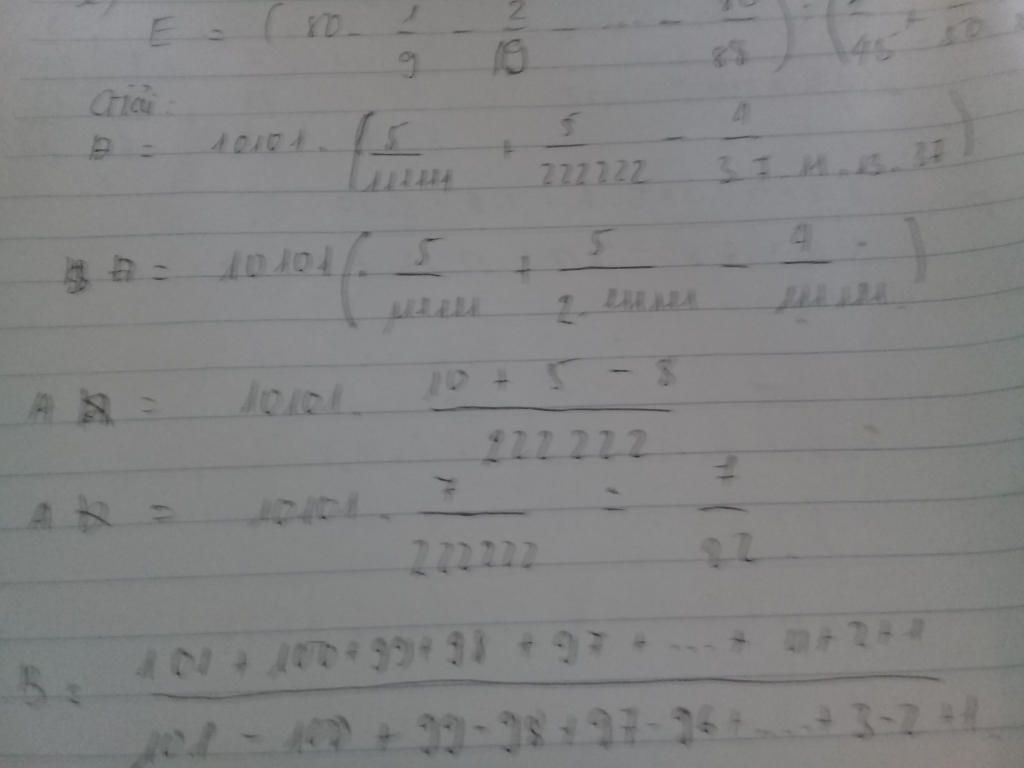 E = ( 80 - 1/9 - 2/10 - .... - 80/88 ) : ( 1/45 + 1/50
Giải:
D = 10101 . ( 5/111111 + 5/222222 - 4/3.7.11.13.37 )
D = 10101 ( 5/111111 + 5/2.111111 - 4/111111 )
A = 10101 . 10 + 5 - 8/222222
A = 10101 . 7/222222 = 7/22
B = 101 + 100 + 99 + 98 + 97 + .... + + 2 + 1/101 - 100 + 99 - 98 + 97 - 96 + .... + 3 - 2 + 1